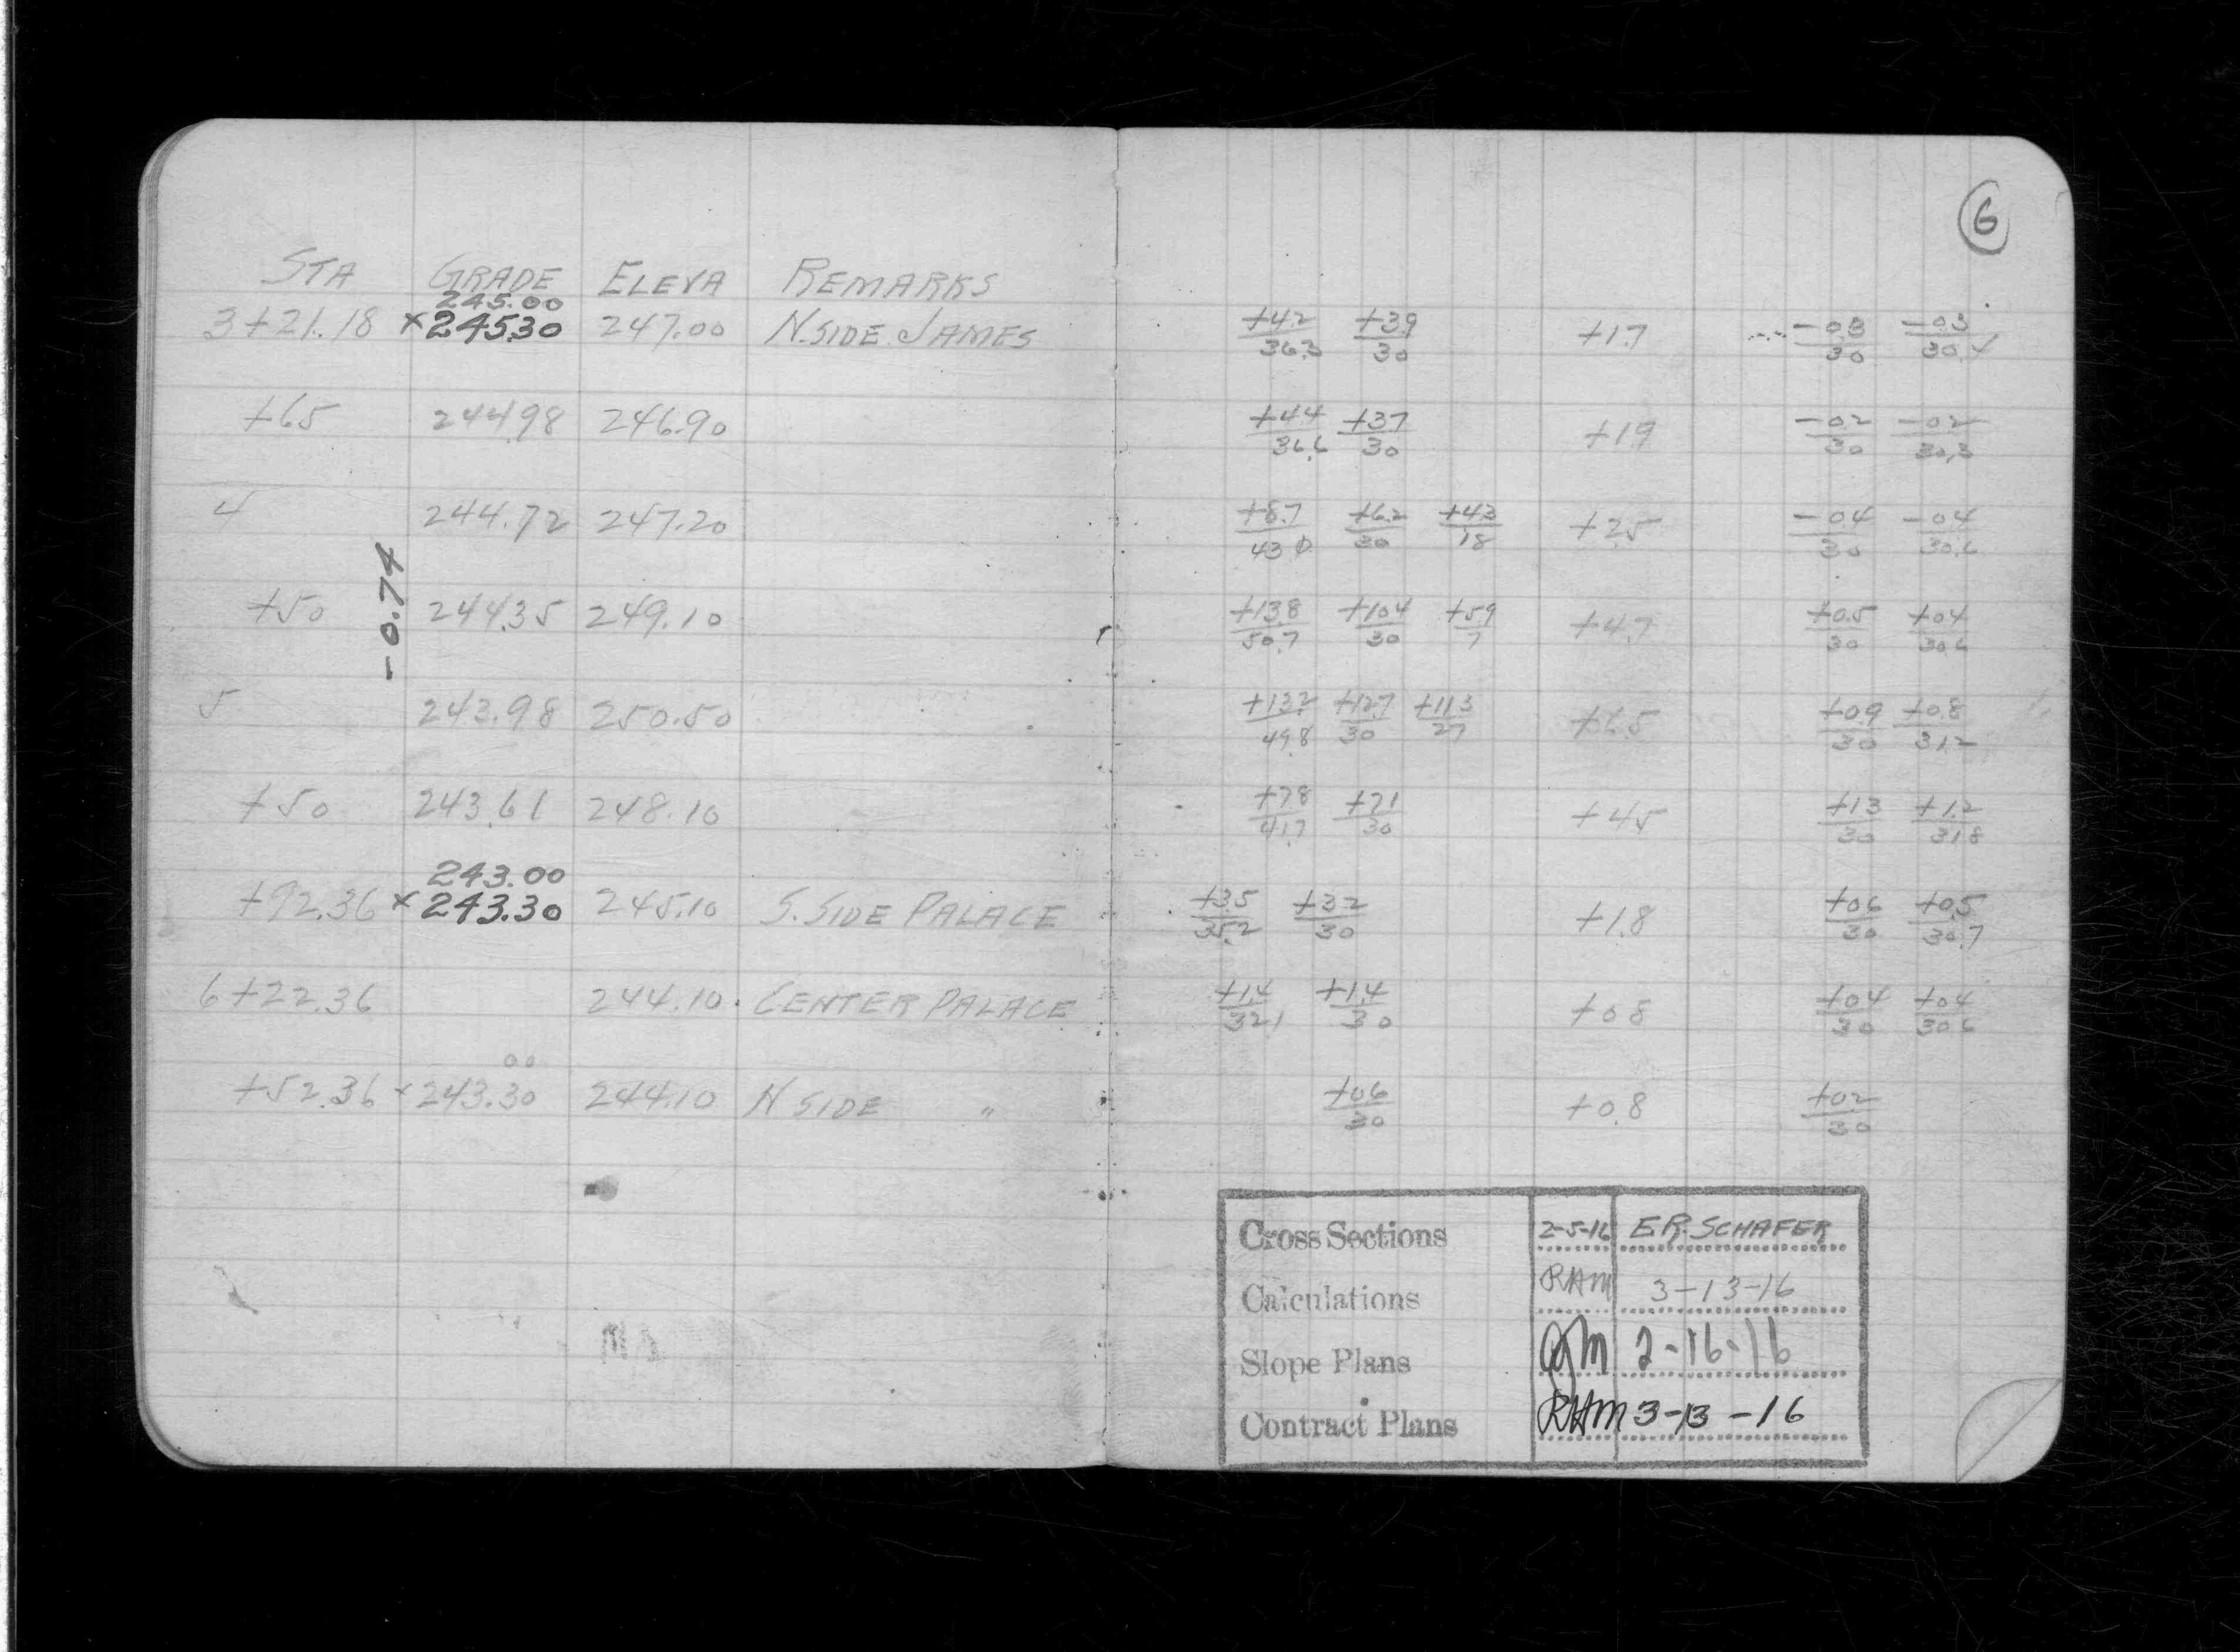 6
STA GRADE ELEVA REMARKS
245.00
3+21.18 ×245.30 247.00 N.SIDE JAMES +4.2/36.3 +3.9/30 +1.7 -0.3/30 -0.3/30. ✓
+65 244.98 246.90 +4.4/36.6 +3.7/30 +1.9 -0.2/30 -0.2/30.3
4 244.72 247.20 +8.7/43.0 +6.2/30 +4.3/18 +2.5 -0.4/30 -0.4/30.6
-0.74
+50 244.35 249.10 +13.8/50.7 +10.4/30 +5.9/7 +4.7 +0.5/30 +0.4/30.6
5 243.98 250.50 +13.2/49.8 +12.7/30 +11.3/27 +6.5 +0.9/30 +0.8/31.2
+50 243.61 248.10 +7.8/41.7 +7.1/30 +4.5 +1.3/30 +1.2/31.8
243.00
+92.36 ×243.30 245.10 S. SIDE PALACE +3.5/35.2 +3.2/30 +1.8 +0.6/30 +0.5/30.7
6+22.36 244.10 CENTER PALACE +1.4/32.1 +1.4/30 +0.8 +0.4/30 +0.4/30.6
00
+52.36 ×243.30 244.10 N SIDE " +0.6/30 +0.8 +0.2/30
Cross Sections 2-5-16 E.R. SCHAFER
Calculations RHM 3-13-16
Slope Plans 2-16-16
Contract Plans RHM 3-13-16